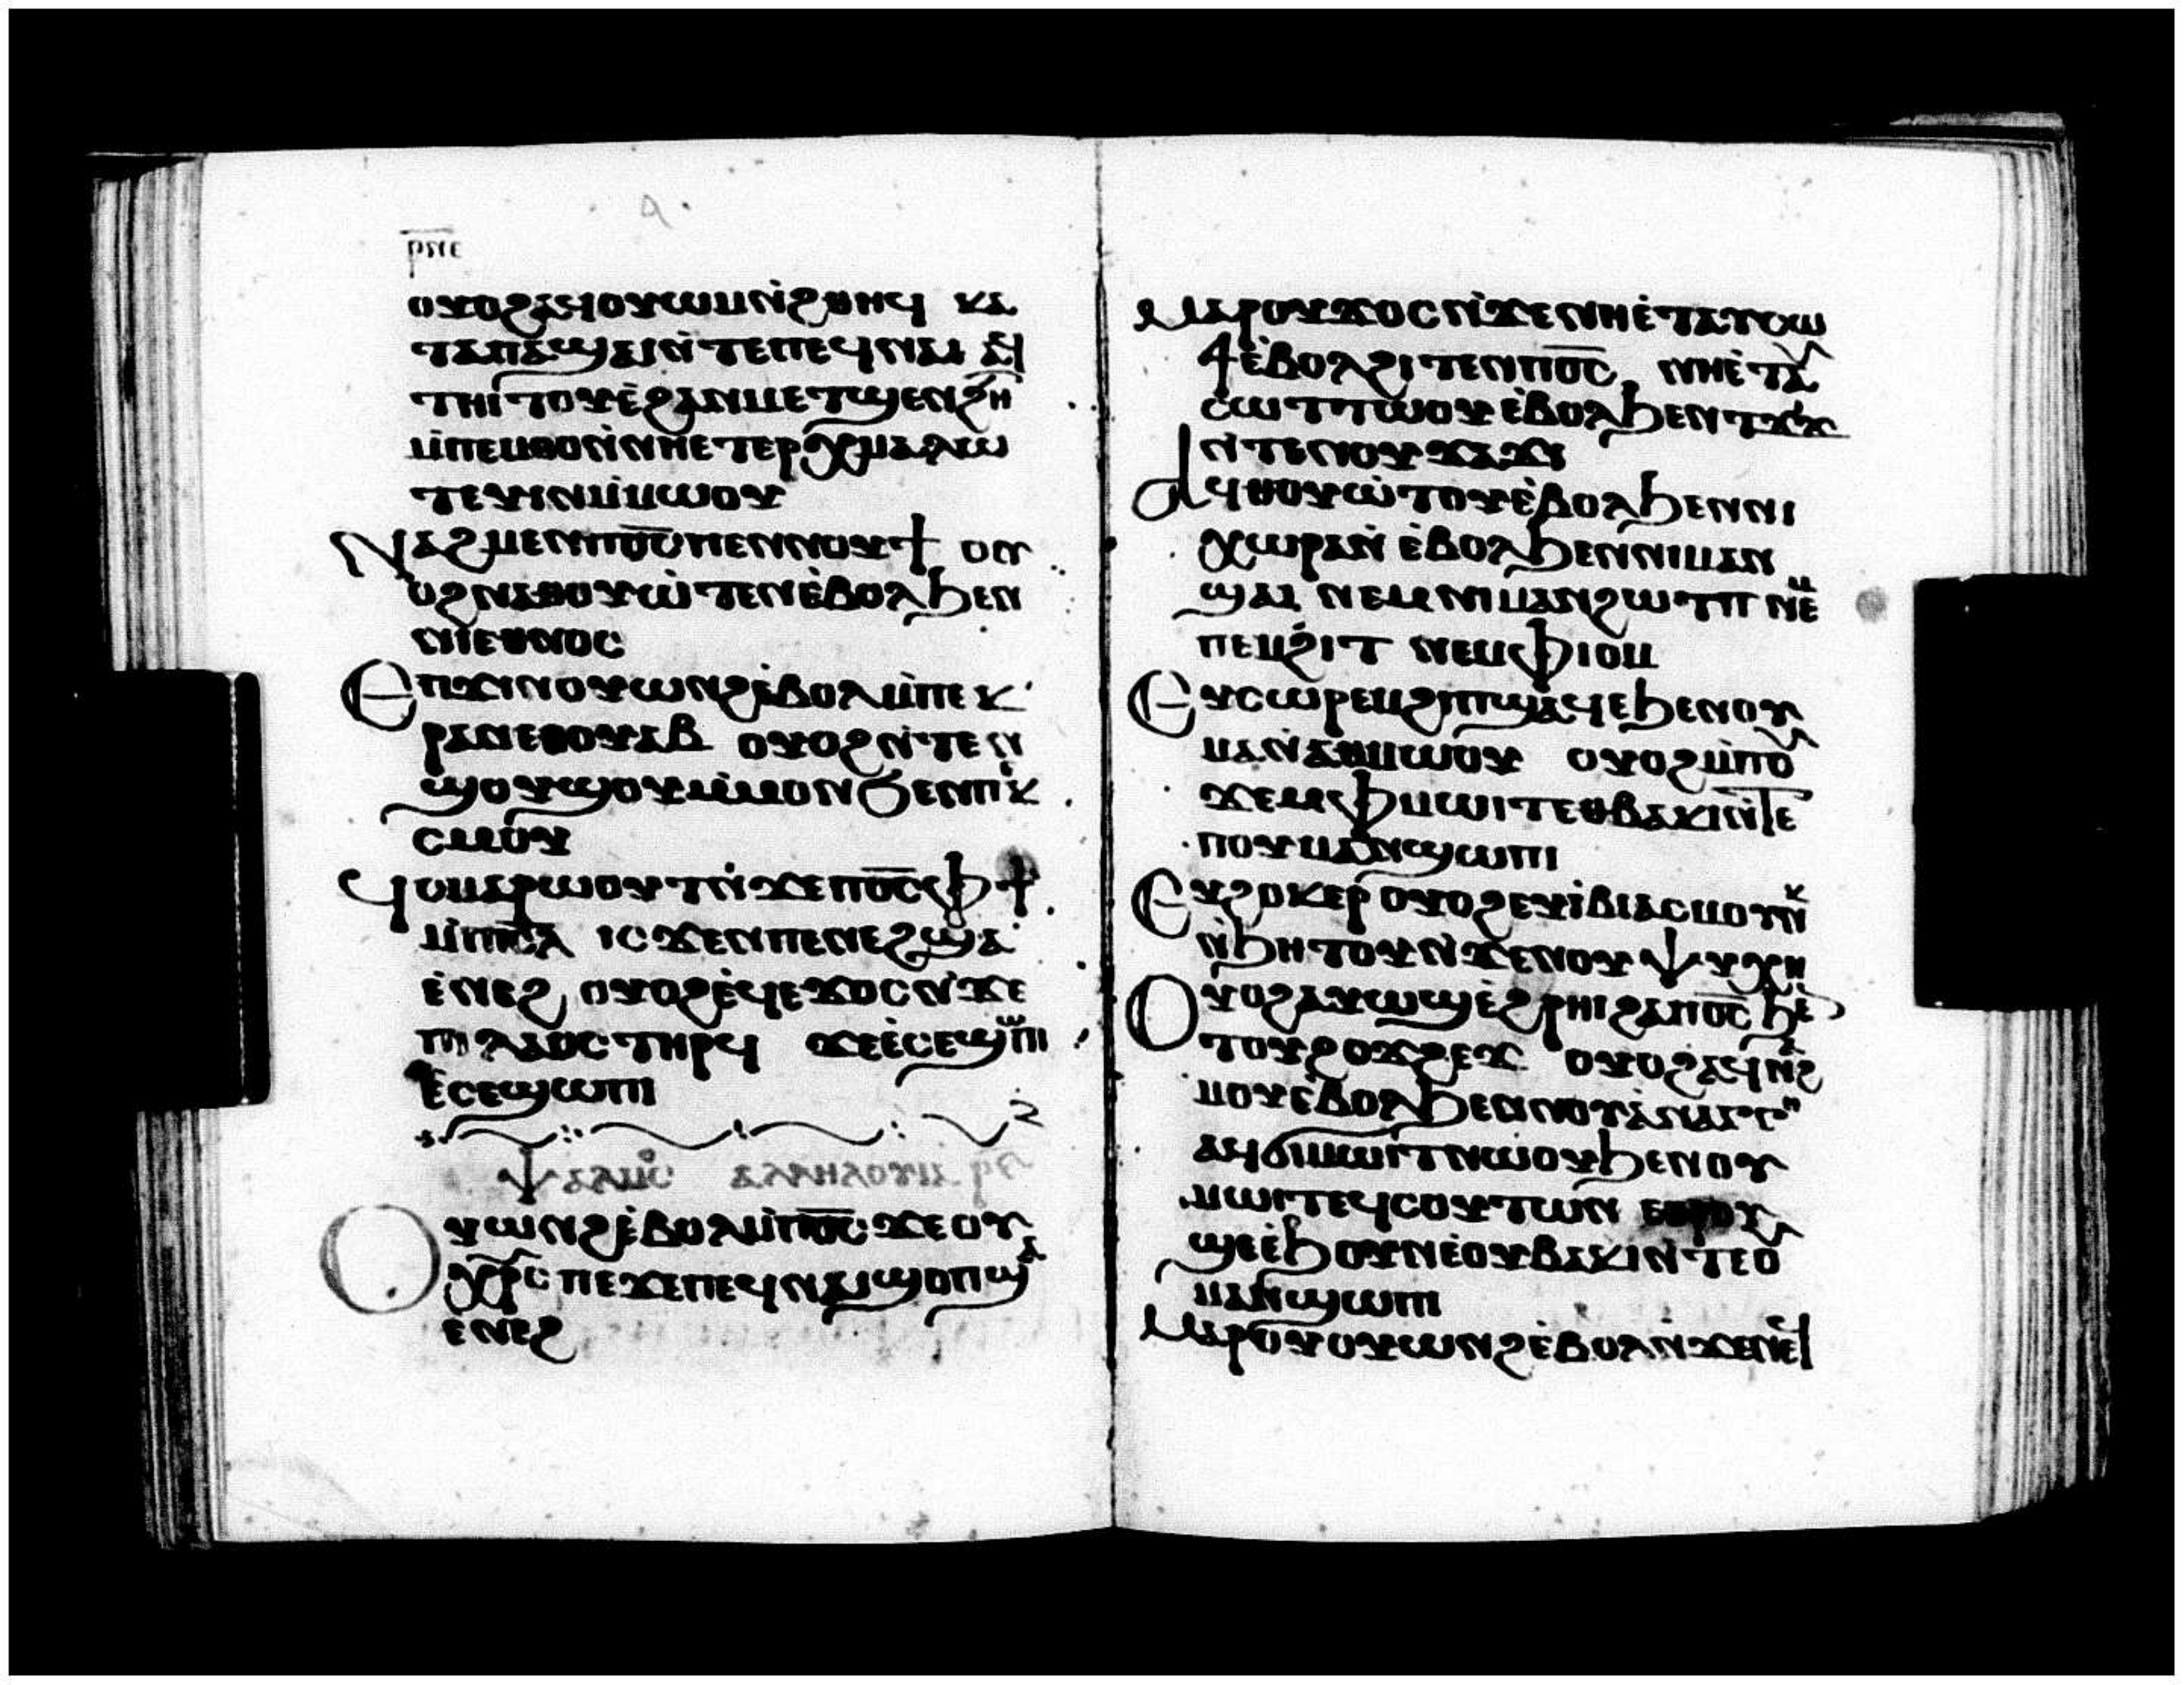 ⲣⲛⲉ
ⲟⲩⲟϩⲁϥⲟⲩⲱⲙⲛ̀ϩⲑⲏϥ ⲕⲁ
ⲧⲁⲡⲁ̀ϣⲁⲓⲛ̀ⲧⲉⲡⲉϥⲛⲁⲓ ⲁϥ
ⲧⲏⲓⲧⲟⲩⲉ̀ϩⲁⲛⲙⲉⲧϣⲉⲛϩⲏ
ⲙ̀ⲡⲉⲙⲑⲟⲛ̀ⲛⲏⲉⲧⲉⲣⲭⲙⲁⲗⲱ
ⲧⲉⲩⲓⲛⲙ̀ⲙⲱⲟⲩ
Ⲛⲁϩⲙⲉⲛⲡⲟ̅ⲥ̅ⲡⲉⲛⲛⲟⲩϯ ⲟⲩ
ⲟϩⲛⲁⲑⲟⲩⲱ̀ⲧⲉⲛⲉ̀ⲃⲟⲗϧⲉⲛ
ⲛⲓⲉⲑⲛⲟⲥ
Ⲉⲡϫⲓⲛⲟⲩⲱⲛϩⲉ̀ⲃⲟⲗⲙ̀ⲡⲉⲕ
ⲣⲁⲛⲉⲑⲟⲩⲁⲃ ⲟⲩⲟϩⲛ̀ⲧⲉⲛ
ϣⲟⲩϣⲟⲩⲙ̀ⲙⲟⲛϧⲉⲛⲡⲉⲕ
ⲥⲙⲟⲩ
Ϥⲥⲙⲁⲣⲱⲟⲩⲧⲛ̀ϫⲉⲡⲟ̅ⲥ̅ⲫϯ
ⲙ̀ⲡⲓⲥ̅ⲗ̅ ⲓⲥϫⲉⲛⲡⲉⲛⲉϩϣⲁ
ⲉ̀ⲛⲉϩ ⲟⲩⲟϩⲉ̀ϥⲉϫⲟⲥⲛ̀ϫⲉ
ⲡⲓⲗⲁⲟⲥⲧⲏⲣϥ ϫⲉⲉ̀ⲥⲉϣⲱⲡⲓ
ⲉ̀ⲥⲉϣⲱⲡⲓ
Ⲯⲁⲗⲙⲟⲥ ⲁⲗⲗⲏⲗⲟⲩⲓⲁ ⲣⲋ
Ⲟⲩⲱⲛϩⲉ̀ⲃⲟⲗⲙ̀ⲡⲟ̅ⲥ̅ϫⲉⲟⲩ
ⲭⲣ̅ⲥ̅ⲡⲉϫⲉⲡⲉϥⲛⲁⲓϣⲟⲡϣⲁ
ⲉⲛⲉϩ
Ⲙⲁⲣⲟⲩϫⲟⲥⲛ̀ϫⲉⲛⲏⲉ̀ⲧⲁⲩⲥⲱ
ϯⲉ̀ⲃⲟⲗϩⲓⲧⲉⲛⲡⲟ̅ⲥ̅ ⲛⲏⲉ̀ⲧⲁⲩ
ⲥⲱⲧⲡⲱⲟⲩⲉ̀ⲃⲟⲗϧⲉⲛⲧϫⲓϫ
ⲛ̀ⲧⲉⲛⲟⲩϫⲁϫⲓ
Ⲁϥⲑⲟⲩⲱ̀ⲧⲟⲩⲉ̀ⲃⲟⲗϧⲉⲛⲛⲓ
ⲭⲱⲣⲁⲛ̀ ⲉ̀ⲃⲟⲗϧⲉⲛⲛⲓⲙⲁⲛ
ϣⲁⲓ ⲛⲉⲙⲛⲓⲙⲁⲛϩⲱⲧⲡ ⲛⲉⲙ
ⲡⲉⲙϩⲓⲧ ⲛⲉⲙⲫⲓⲟⲙ
Ⲉⲩⲥⲱⲣⲉⲙϩⲓⲡϣⲁϥⲉϧⲉⲛⲟⲩ
ⲙⲁⲛ̀ⲁⲑⲙⲱⲟⲩ ⲟⲩⲟϩⲙ̀ⲡⲟⲩ
ϫⲉⲙⲫⲙⲱⲓⲧⲉⲑⲃⲁⲕⲓⲛ̀ⲧⲉ
ⲡⲟⲩⲙⲁⲛϣⲱⲡⲓ
Ⲉⲩϩⲟⲕⲉⲣ ⲟⲩⲟϩⲉⲩⲓ̀ⲃⲓⲁⲥⲙⲟⲩⲛⲕ
ⲛ̀ϧⲏⲧⲟⲩⲛ̀ϫⲉⲛⲟⲩⲯⲩⲭⲏ
Ⲟⲩⲟϩⲁⲩⲱϣⲉ̀ϩⲣⲏⲓϩⲁⲡⲟ̅ⲥ̅ϧⲉ
ⲧⲟⲩϩⲟϫϩⲉϫ ⲟⲩⲟϩⲁϥⲛⲁϩ
ⲙⲟⲩⲉ̀ⲃⲟⲗϧⲉⲛⲛⲟⲩⲁ̀ⲛⲁⲅⲕⲏ
ⲁϥϭⲓⲙⲱⲓⲧⲛⲱⲟⲩϧⲉⲛⲟⲩ
ⲙⲱⲓⲧⲉϥⲥⲟⲩⲧⲱⲛ ⲉⲑⲣⲟⲩ
ϣⲉⲉ̀ϧⲟⲩⲛⲉ̀ⲟⲩⲃⲁⲕⲓⲛ̀ⲧⲉⲟ
ⲙⲁⲛϣⲱⲡⲓ
Ⲙⲁⲣⲟⲩⲟⲩⲱⲛϩⲉ̀ⲃⲟⲗⲛ̀ϫⲉⲛⲉϥ